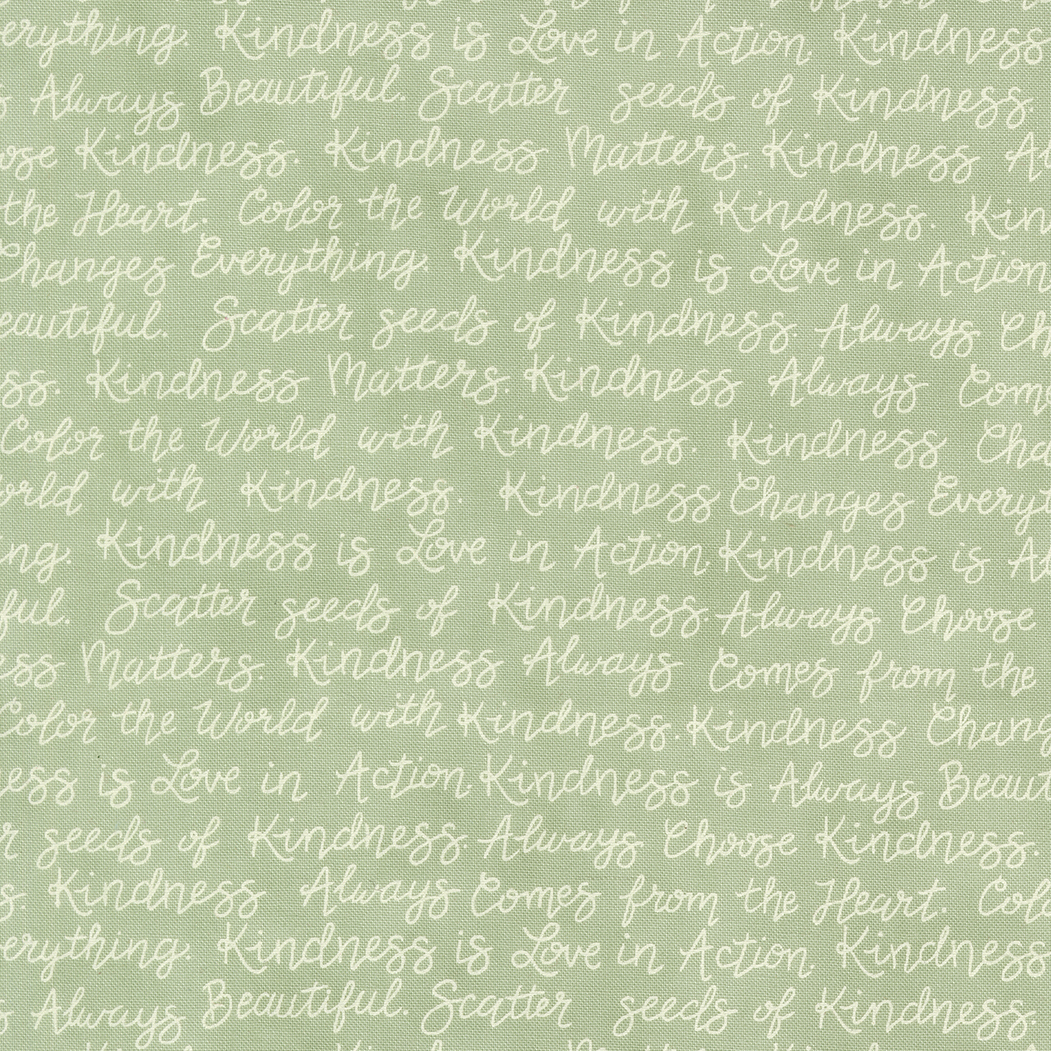 erything. Kindness is Love in Action. Kindness
Always Beautiful. Scatter seeds of Kindness.
ose Kindness. Kindness Matters. Kindness Al
the Heart. Color the World with Kindness. Kin
Changes Everything. Kindness is Love in Action
eautiful. Scatter seeds of Kindness. Always Ch
ss. Kindness Matters. Kindness Always Come
Color the World with Kindness. Kindness Cha
orld with Kindness. Kindness Changes Everyt
ng. Kindness is Love in Action. Kindness is Al
ful. Scatter seeds of Kindness. Always Choose
ess Matters. Kindness Always Comes from the
Color the World with Kindness. Kindness Chang
ess is Love in Action. Kindness is Always Beaut
r seeds of Kindness. Always Choose Kindness.
s. Kindness Always Comes from the Heart. Colo
erything. Kindness is Love in Action. Kindness
Always Beautiful. Scatter seeds of Kindness.